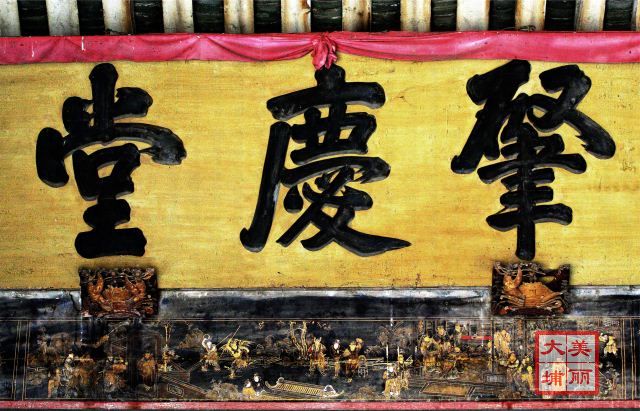 肇慶堂
美丽
大埔